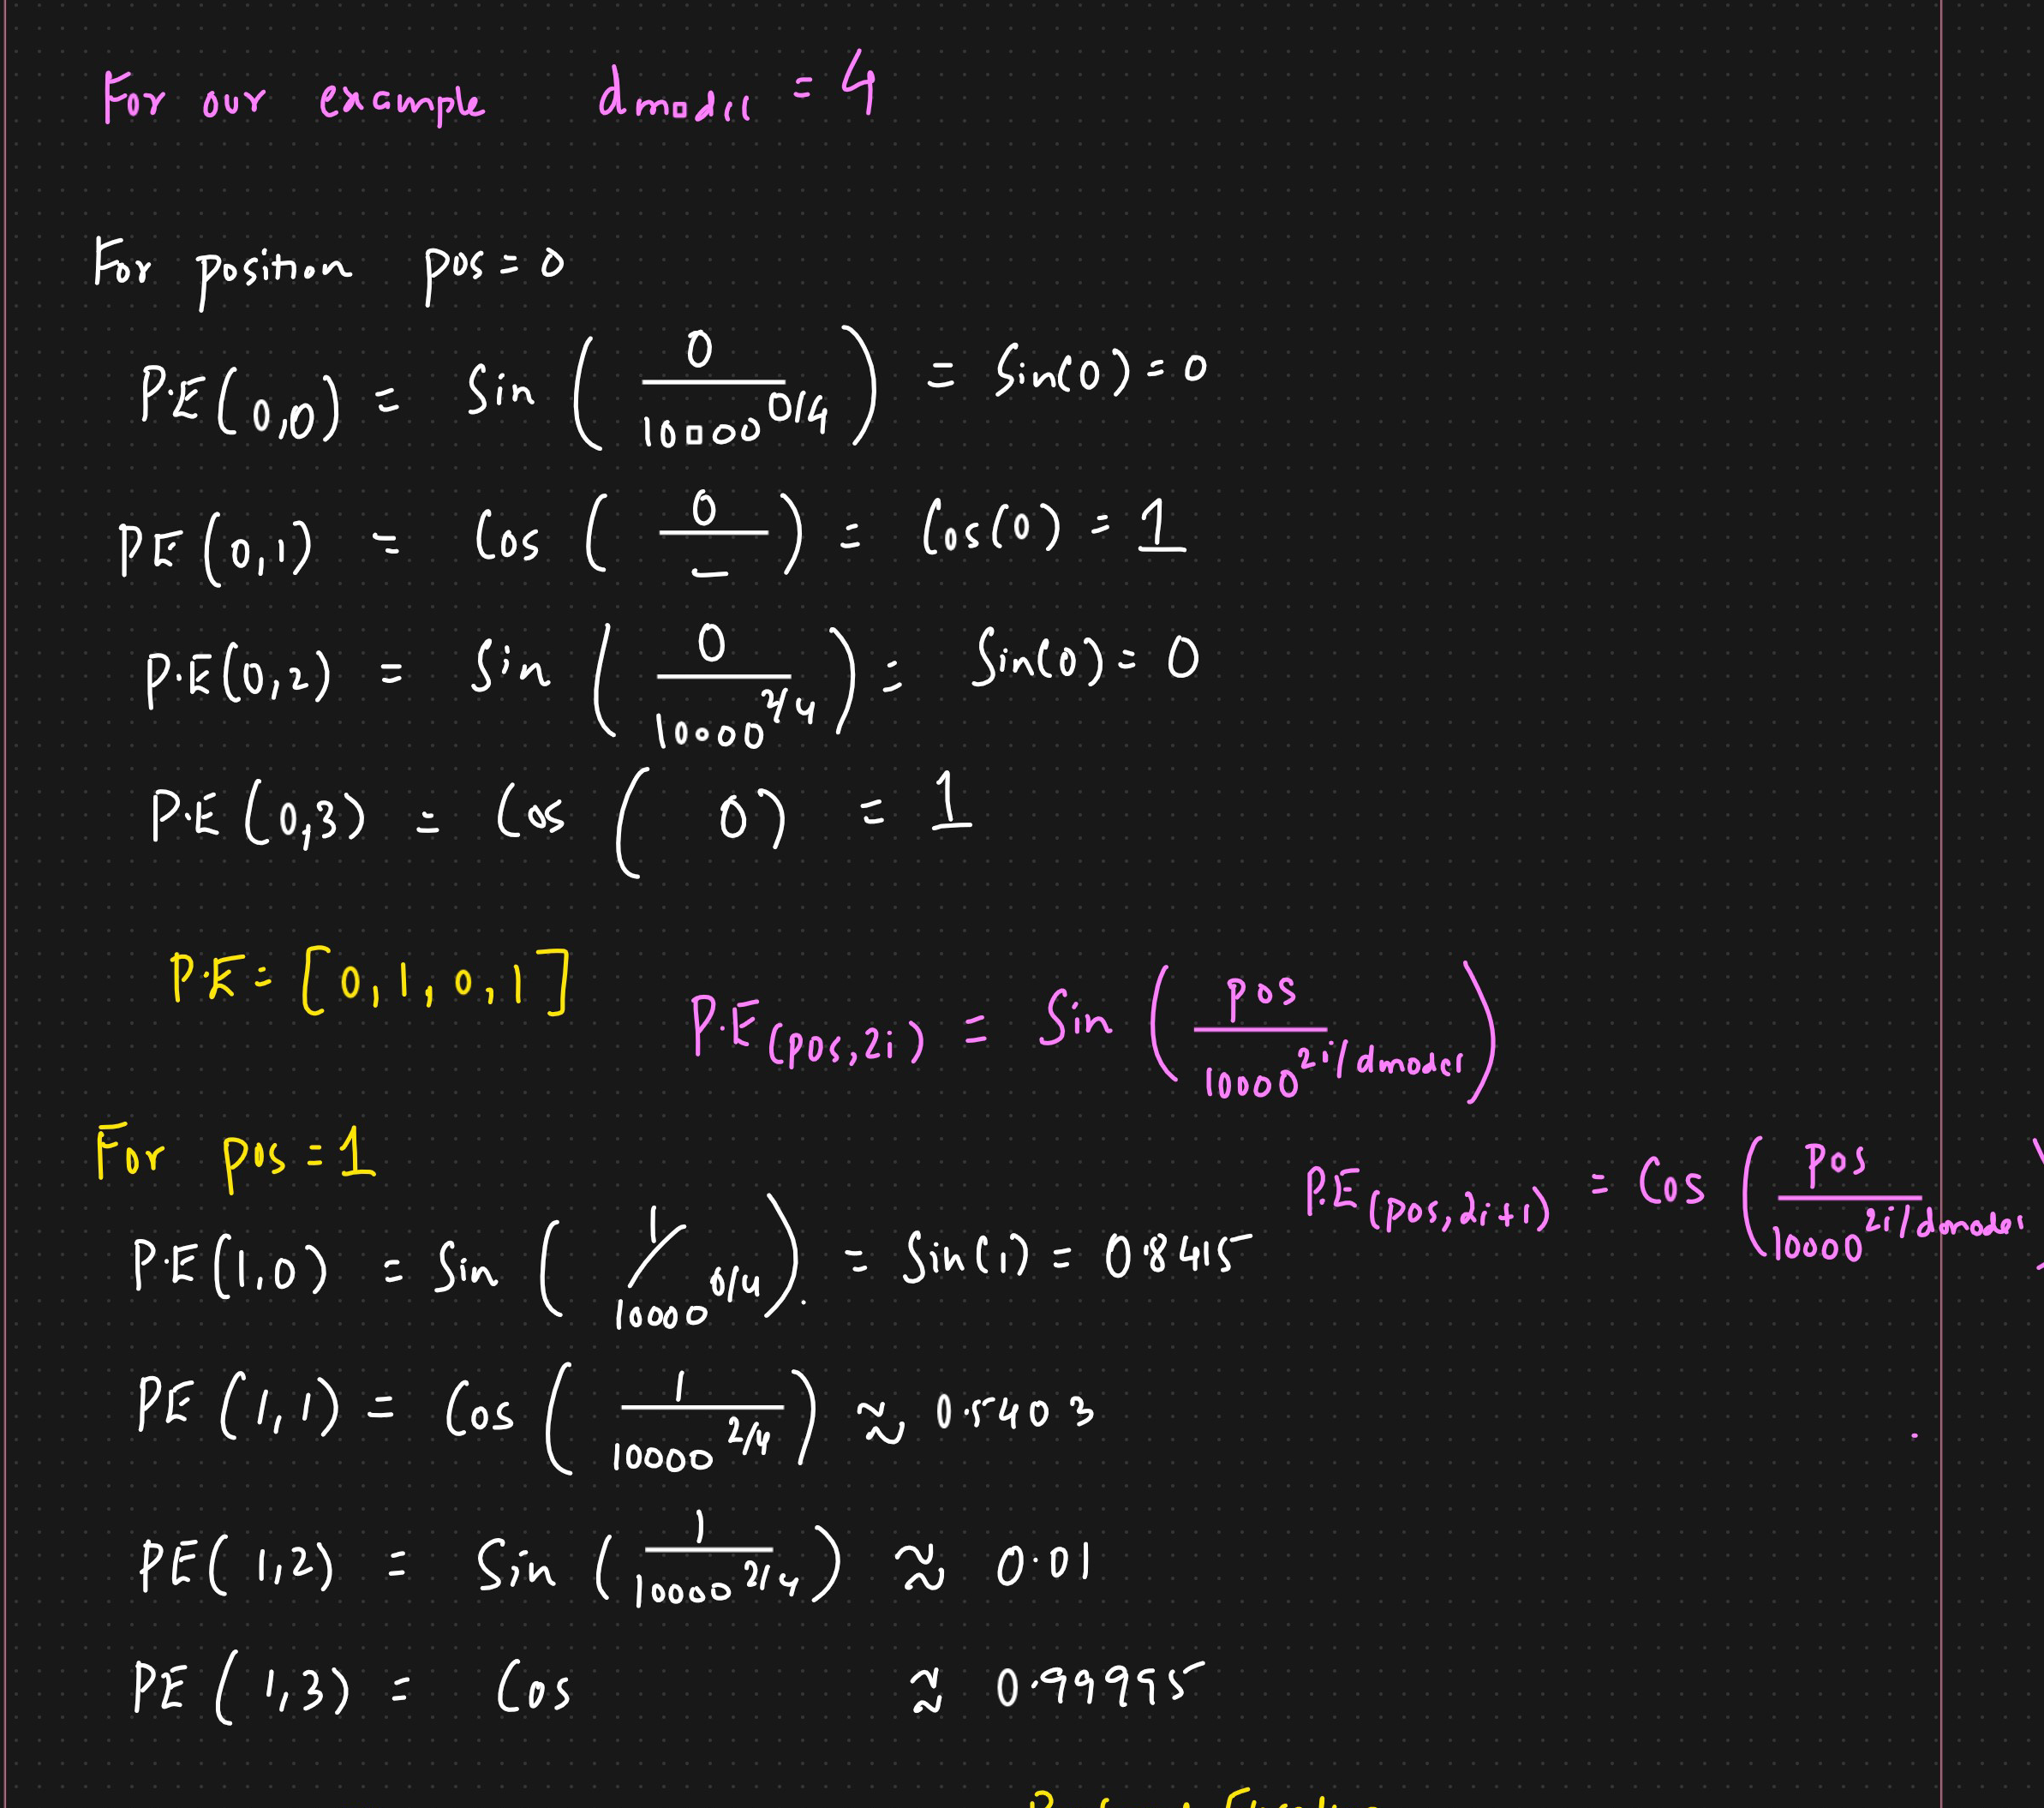 For our example d_model = 4
For position pos = 0
P.E(0,0) = Sin ( 0 / 10000^0/4 ) = Sin(0) = 0
PE(0,1) = Cos ( 0 / – ) = Cos(0) = 1
P.E(0,2) = Sin ( 0 / 10000^2/4 ) = Sin(0) = 0
P.E(0,3) = Cos ( 0 ) = 1
P.E = [0, 1, 0, 1]
P.E(pos, 2i) = Sin ( pos / 10000^2i/dmodel )
For pos = 1
P.E(pos, 2i+1) = Cos ( pos / 10000^2i/dmodel )
P.E(1,0) = Sin ( 1 / 10000^0/4 ). = Sin(1) = 0.8415
PE(1,1) = Cos ( 1 / 10000^2/4 ) ≈ 0.5403
PE(1,2) = Sin ( 1 / 10000^2/4 ) ≈ 0.01
PE(1,3) = Cos ≈ 0.99995